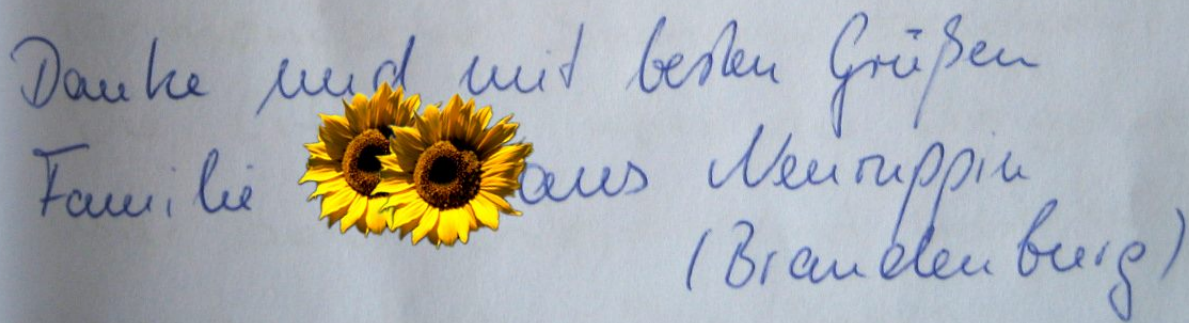 Danke und mit besten Grüßen
Familie aus Neuruppin
(Brandenburg)